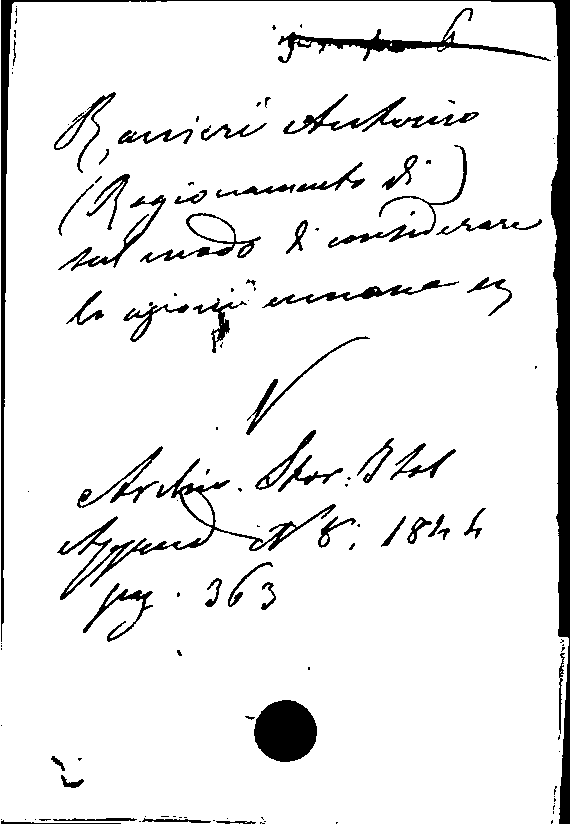 6
Ranieri Antonio
(Ragionamento di)
sul modo di considerare
le azioni umane
V
Archiv. Stor. Ital
Append N 8. 1844
pag. 363